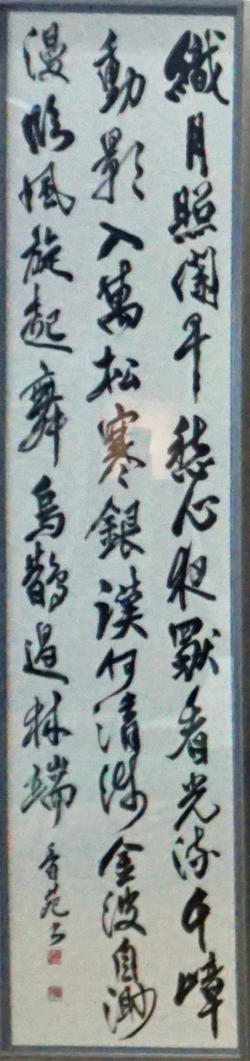 纖月照闌干愁心夜獨看光流千嶂
動影入萬松寒銀漢何清淺金波自渺
漫臨風旋起舞烏鵲過林端 香苑書